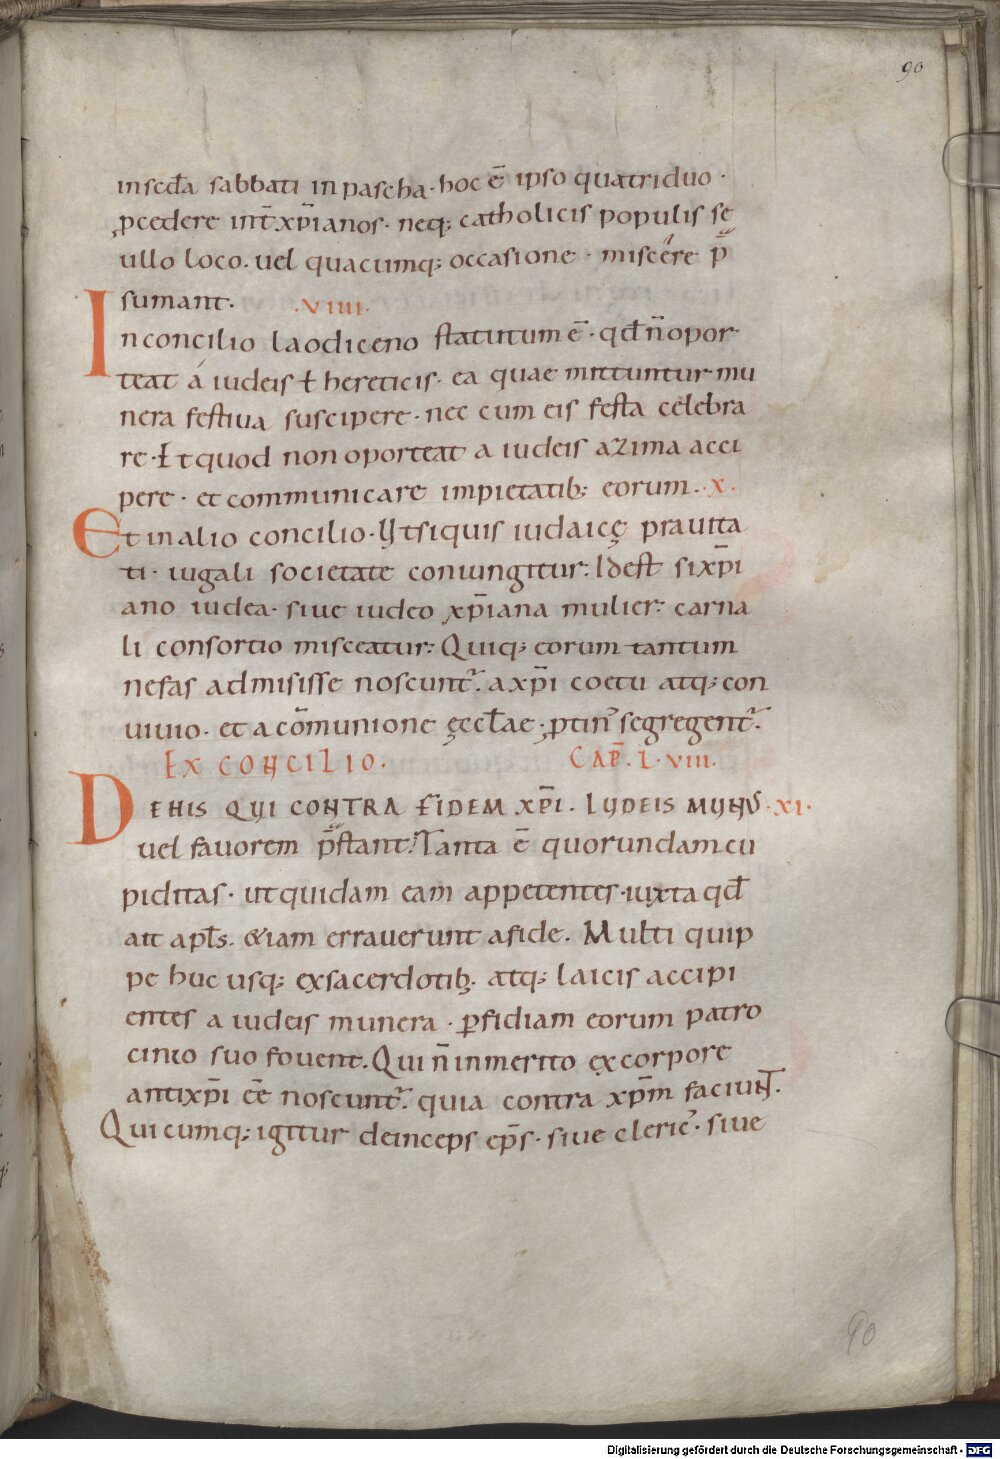 90
in scďa sabbati in pascha · hoc ē ipso quatriduo ·
ꝓcedere int̄ xp̄ianos · neq; catholicis populis se
ullo loco · uel quacumq; occasione · miscére p̄
sumant. · VIIII ·
In concilio laodiceno statutum ē · qđ n̄ opor
teat á iudeis ł hereticis · ea quae mittuntur mu
nera festiua suscipere · nec cum eis festa celebra
re · Et quod non oporteat a iudeis azima acci
pere · et communicare impietatib; eorum · · X ·
Et in alio concilio · Ut siquis iudaicę prauita
ti · iugali societate coniungitur: Idest si xp̄i
ano iudea · siue iudeo xp̄iana mulier: carna
li consortio misceatur: Quiq; eorum tantum
nefas admisisse noscunt᷑. a xp̄i coetu atq; con
uiuio · et a cōmunione ęccłae · ꝓtin᷒ segregent᷑.
EX CONCILIO · CAP̄ · L · VIII ·
DE HIS QUI CONTRA FIDEM XP̄I · IUDEIS MUNUS · XI ·
uel fauorem p̄stant: Tanta ē quorundam cu
piditas · ut quidam eam appetentes · iuxta qđ
ait apłs. &iam errauerunt a fide. Multi quip
pe huc usq; ex sacerdotib; · atq; laicis accipi
entes a iudeis munera · ꝑfidiam eorum patro
cinio suo fouent. Qui n̄ inmerito ex corpore
antixp̄i eē noscunt᷑. quia contra xp̄m faciunt.
Quicumq; igitur deinceps ep̄s · siue cleric᷒ · siue
90
Digitalisierung gefördert durch die Deutsche Forschungsgemeinschaft - DFG